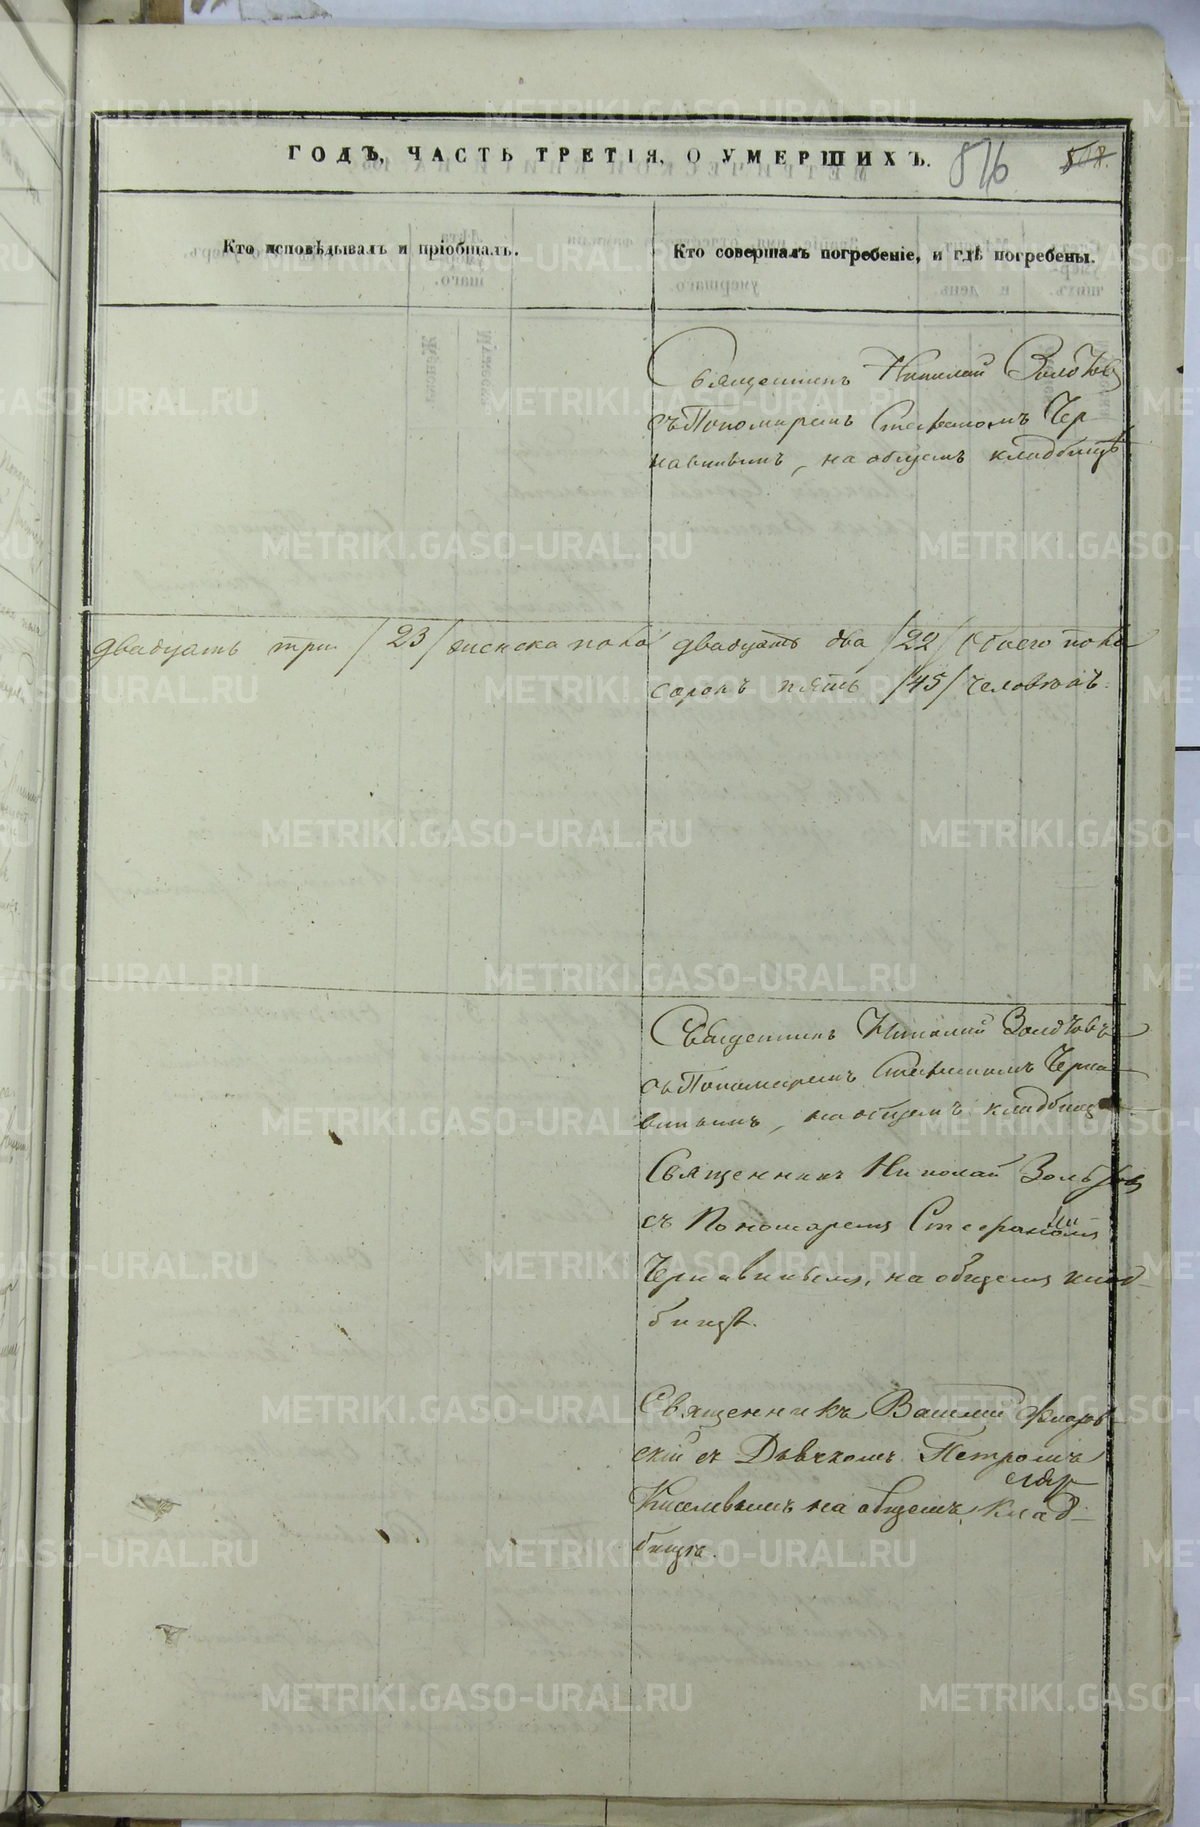 ГОДЪ, ЧАСТЬ ТРЕТІЯ, О УМЕРШИХЪ.
516
508.
Кто исповѣдывалъ и пріобщалъ.
Кто совершалъ погребеніе, и гдѣ погребены.
Священникъ Николай Золотовъ
съ Пономаремъ Стефаномъ Чер
навинымъ, на общемъ кладбищѣ
двадцать три /23/ женска пола двадцать два /22/ обоего пола
сорокъ пять /45/ человѣкъ.
Священникъ Николай Золотовъ
съ Пономаремъ Стефаномъ Черна
винымъ, на общемъ кладбищѣ
Священникъ Николай Золотовъ
съ Пономаремъ Стефаномъ
Чернавинымъ, на общемъ клад-
бищѣ.
Священникъ Василій Флоров
скій съ Дьячкомъ Петромъ
Киселевымъ на общемъ клад-
бищѣ.
METRIKI.GASO-URAL.RU